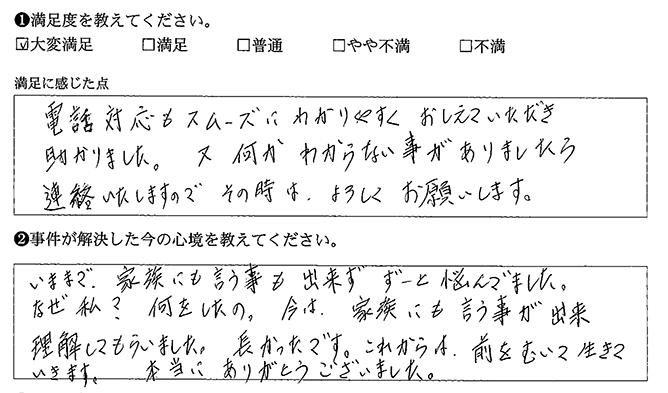 ❶満足度を教えてください。
☑大変満足 □満足 □普通 □やや不満 □不満
満足に感じた点
電話対応もスムーズにわかりやすく おしえていただき
助かりました。 又 何か わからない事がありましたら
連絡いたしますので その時は、よろしく お願いします。
❷事件が解決した今の心境を教えてください。
いままで、家族にも言う事も 出来ず ずーと悩んでました。
なぜ私? 何をしたの。 今は、家族にも 言う事が 出来
理解してもらいました。 長かったです。これからは、前をむいて生きて
いきます。 本当に ありがとうございました。